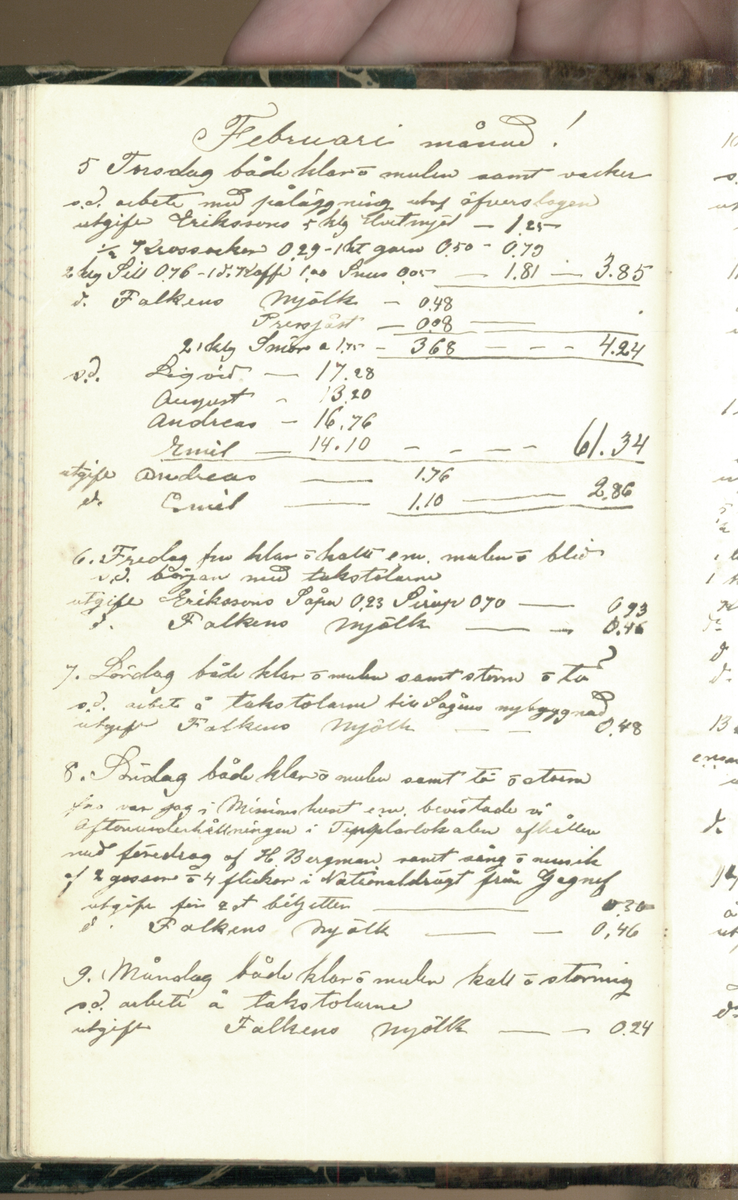 Februari månad!
5 Torsdag både klar o mulen samt vacker
s.d. arbete med påläggning utaf öfverslagen
utgift Erikssons 5 klg Hvetmjöl — 1.25
½ " Krossocker 0.29 - 1 ht garn 0.50 - 0.79
2 klg Sill 0.76 - 1 d. Kaffe 1.00 Snus 0.05 — 1.81 — 3.85
d. Falkens Mjölk — 0.48
Pressjäst — 0.08
2 1 klg Smör a 1.75 - 3.68 - - - 4.24
s.d. Sigvid — 17.28
August - 13.20
Andreas - 16.76
Emil — 14.10 - - - - 61.34
utgift Andreas — 1.76
d. Emil — 1.10 — 2.86
6. Fredag fm klar o kallt em. mulen o blid
s.d. början med takstolarne
utgift Erikssons Såpa 0.23 Sirap 0.70 — 0.93
d. Falkens Mjölk — - 0.46
7. Lördag både klar o mulen samt storm o tö
s.d. arbete å takstolarne till Sågens nybyggnad
utgift Falkens Mjölk — - 0.48
8. Söndag både klar o mulen samt tö o storm
fm var jag i Missionshuset em. bevistade vi
Aftonunderhållningen i Templarlokalen afhållen
med föredrag af H. Bergman samt sång o musik
af 2 gossar o 4 flickor i Nationaldrägt från Gagnef
utgift för 2 st biljetter — 0.30
d. Falkens Mjölk — - 0.46
9. Måndag både klar o mulen kall o stormig
s.d. arbete å takstolarne
utgift Falkens Mjölk — - 0.24